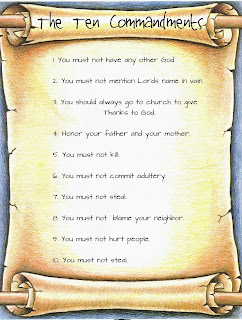 The Ten Commandments
1. You must not have any other God
2. You must not mention Lords name in vain.
3. You should always go to church to give
Thanks to God.
4. Honor your father and your mother.
5. You must not kill.
6. You must not commit adultery.
7. You must not steal.
8. You must not blame your neighbor.
9. You must not hurt people.
10. You must not steal.